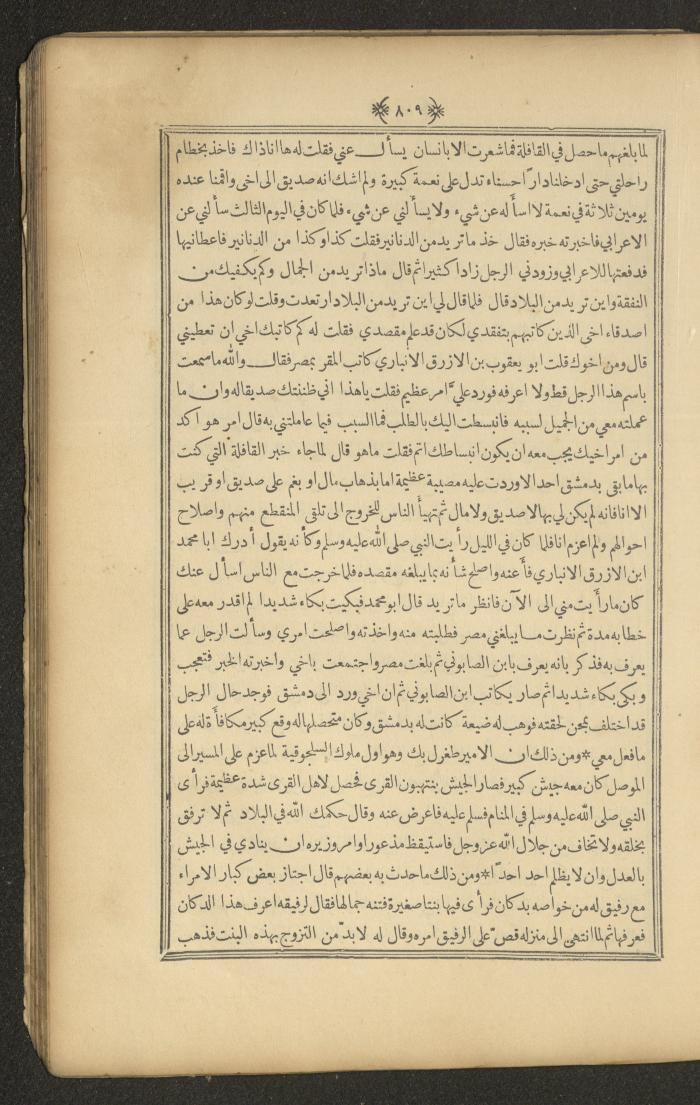 ٨٠٩
لما بلغهم ما حصل في القافلة فما شعرت الا بانسان يسأل عني فقلت له ها انا ذاك فاخذ بخطام
راحلتي حتى ادخلنا داراً حسناء تدل على نعمة كبيرة ولم اشك انه صديق الى اخي واقمنا عنده
يومين ثلاثة في نعمة لا اسأله عن شيء ولا يسألني عن شيء فلما كان في اليوم الثالث سألني عن
الاعرابي فاخبرته خبره فقال خذ ما تريد من الدنانير فقلت كذا وكذا من الدنانير فاعطانيها
فدفعتها للاعرابي وزودني الرجل زادا كثيرا ثم قال ماذا تريد من الجمال وكم يكفيك من
النفقة واين تريد من البلاد قال فلما قال لي اين تريد من البلاد ارتعدت وقلت لو كان هذا من
اصدقاء اخى الذين كاتبهم بتفقدي لكان قد علم مقصدي فقلت له كم كاتبك اخي ان تعطيني
قال ومن اخوك قلت ابو يعقوب بن الازرق الانباري كاتب المقر بمصر فقال والله ما سمعت
باسم هذا الرجل قط ولا اعرفه فورد عليّ امر عظيم فقلت يا هذا اني ظننتك صديقا له وان ما
عملته معي من الجميل لسببه فانبسطت اليك بالطلب فما السبب فيما عاملتني به قال امر هو اكد
من امر اخيك يجب معه ان يكون انبساطك اتم فقلت ما هو قال لما جاء خبر القافلة التي كنت
بها ما بقى بدمشق احد الا وردت عليه مصيبة عظيمة اما بذهاب مال او بغم على صديق او قريب
الا انا فانه لم يكن لي بها لا صديق ولا مال ثم تهيأ الناس للخروج الى تلقى المنقطع منهم واصلاح
احوالهم ولم اعزم انا فلما كان في الليل رأيت النبي صلى الله عليه وسلم وكأنه يقول أدرك ابا محمد
ابن الازرق الانباري فأعنه واصلح شأنه بما يبلغه مقصده فلما خرجت مع الناس اسأل عنك
كان ما رأيت مني الى الآن فانظر ما تريد قال ابو محمد فبكيت بكاء شديدا لم اقدر معه على
خطابه مدة ثم نظرت ما يبلغني مصر فطلبته منه واخذته واصلحت امري وسألت الرجل عما
يعرف به فذكر بانه يعرف بابن الصابوني ثم بلغت مصر واجتمعت باخي واخبرته الخبر فتعجب
وبكى بكاء شديدا ثم صار يكاتب ابن الصابوني ثم ان اخي ورد الى دمشق فوجد حال الرجل
قد اختلف بمحن لحقته فوهب له ضيعة كانت له بدمشق وكان متحصلها له وقع كبير مكافأة له على
ما فعل معي * ومن ذلك ان الامير طغرل بك وهو اول ملوك السلجوقية لما عزم على المسير الى
الموصل كان معه جيش كبير فصار الجيش ينتهبون القرى فحصل لاهل القرى شدة عظيمة فرأى
النبي صلى الله عليه وسلم في المنام فسلم عليه فاعرض عنه وقال حكمك الله في البلاد ثم لا ترفق
بخلقه ولا تخاف من جلال الله عز وجل فاستيقظ مذعورا وامر وزيره ان ينادي في الجيش
بالعدل وان لا يظلم احد احدًا * ومن ذلك ما حدث به بعضهم قال اجتاز بعض كبار الامراء
مع رفيق له من خواصه بدكان فرأى فيها بنتا صغيرة فتنه جمالها فقال لرفيقه اعرف هذا الدكان
فعرفها ثم لما انتهى الى منزله قصّ على الرفيق امره وقال له لا بدّ من التزوج بهذه البنت فذهب